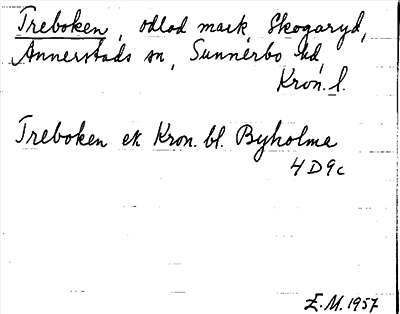 Treboken, odlad mark, Skogaryd,
Annerstads sn, Sunnerbo hd,
Kron. l.
Treboken ek Kron. bl. Byholma
4D9c
E.M. 1957